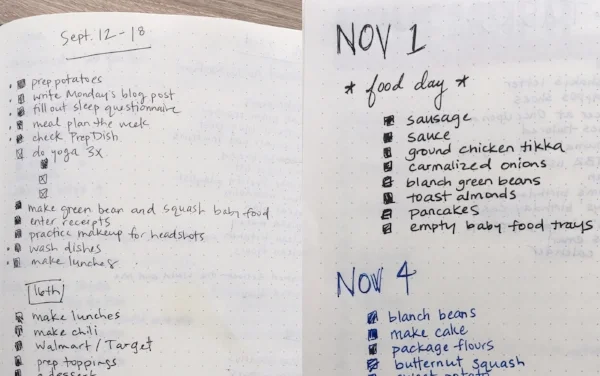 Sept. 12 - 18
prep potatoes
write Monday's blog post
fill out sleep questionnaire
meal plan the week
check Prep Dish
do yoga 3x
make green bean and squash baby food
enter receipts
practice makeup for headshots
wash dishes
make lunches
16th
make lunches
make chili
Walmart / Target
prep toppings
dessert
NOV 1
* food day *
sausage
sauce
ground chicken tikka
carmalized onions
blanch green beans
toast almonds
pancakes
empty baby food trays
NOV 4
blanch beans
make cake
package flours
butternut squash
sweet potato